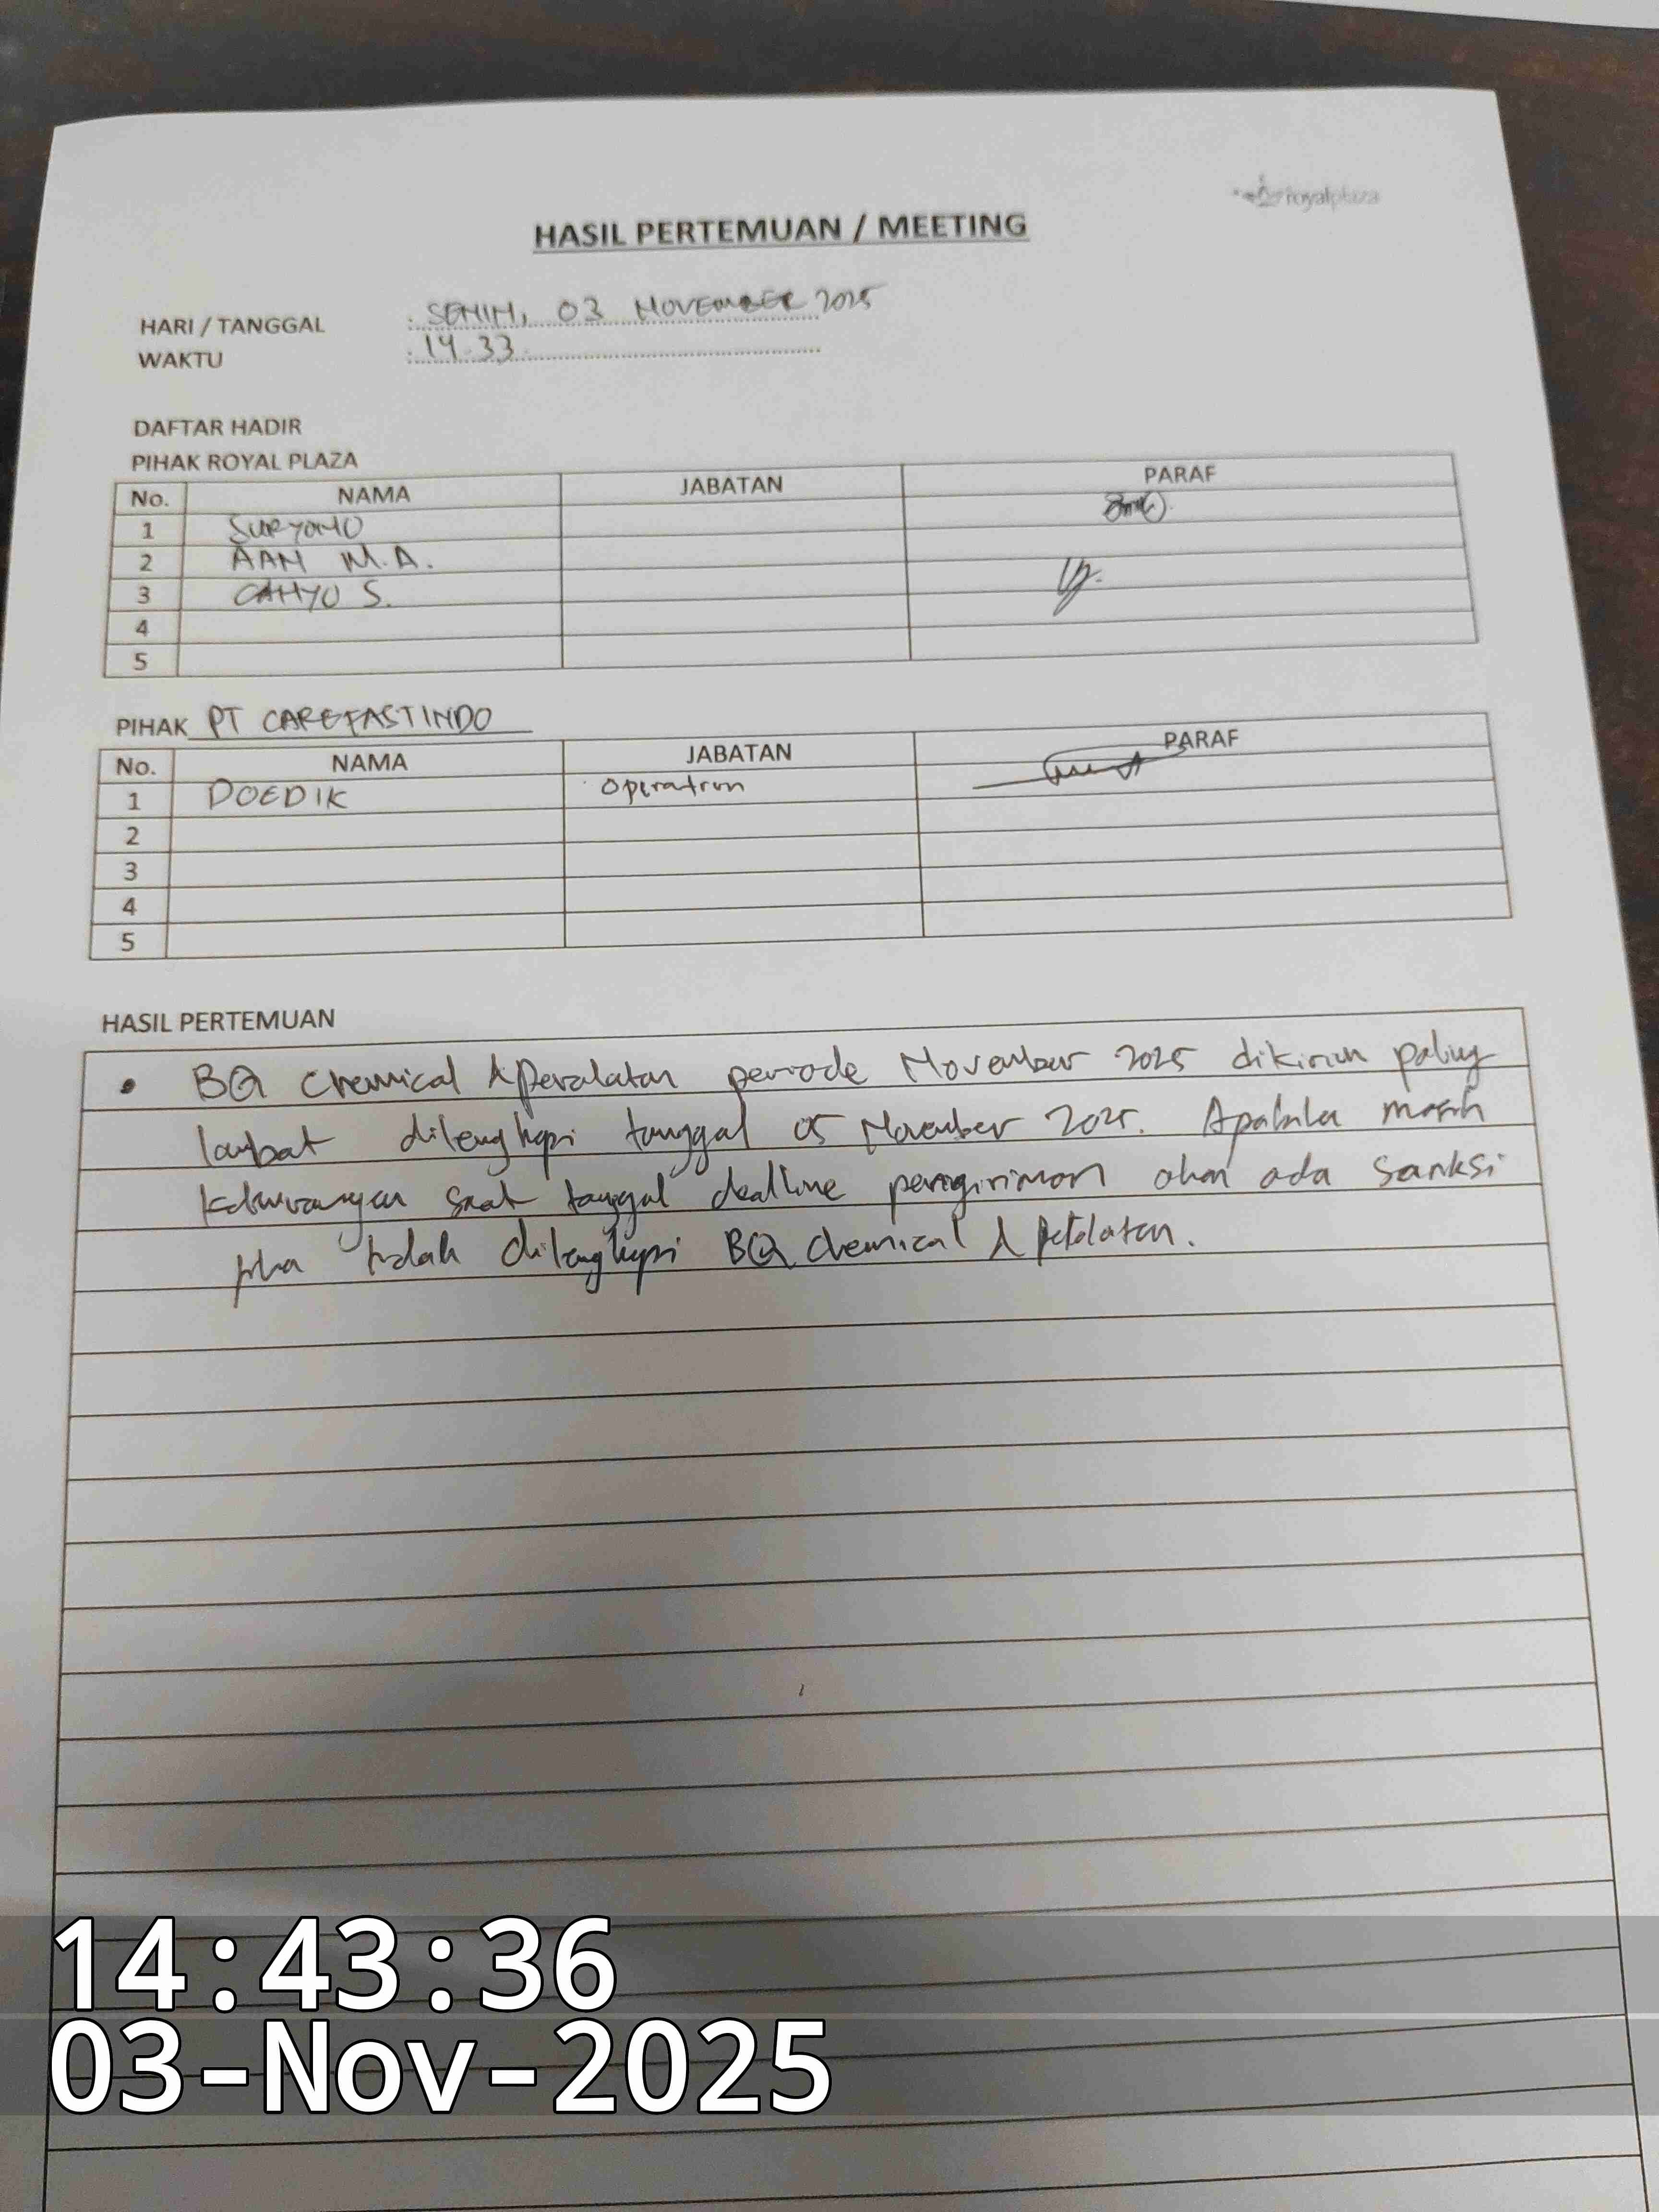 royalplaza
HASIL PERTEMUAN / MEETING
HARI / TANGGAL : SENIN, 03 NOVEMBER 2025
WAKTU : 14.33
DAFTAR HADIR
PIHAK ROYAL PLAZA
No. NAMA JABATAN PARAF
1 SURYONO
2 AAN M.A.
3 CAHYO S.
4
5
PIHAK PT CAREFASTINDO
No. NAMA JABATAN PARAF
1 DOEDIK Operation
2
3
4
5
HASIL PERTEMUAN
• BQ Chemical & Peralatan periode November 2025 dikirim paling
lambat dilengkapi tanggal 05 November 2025. Apabila masih
kekurangan saat tanggal deadline pengiriman akan ada sanksi
jika tidak dilengkapi BQ Chemical &
14:43:36
03-Nov-2025